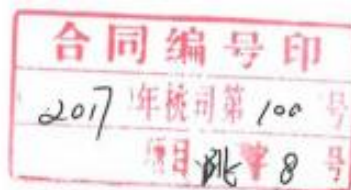 合同编号印
2017年桃司第100号
项目 8号